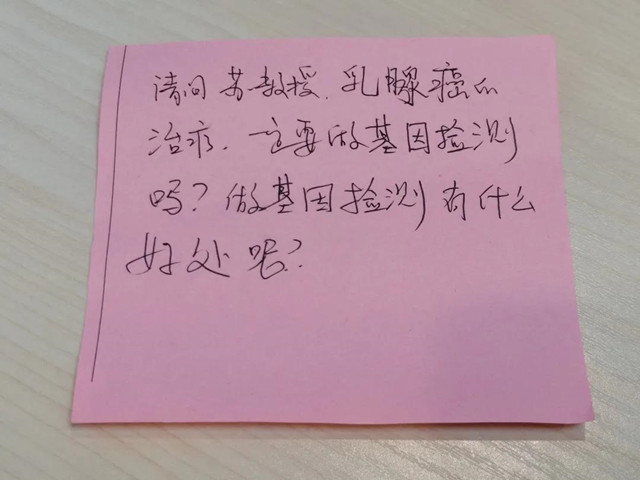 请问苏教授.乳腺癌的
治疗.一定要做基因检测
吗?做基因检测有什么
好处呢?